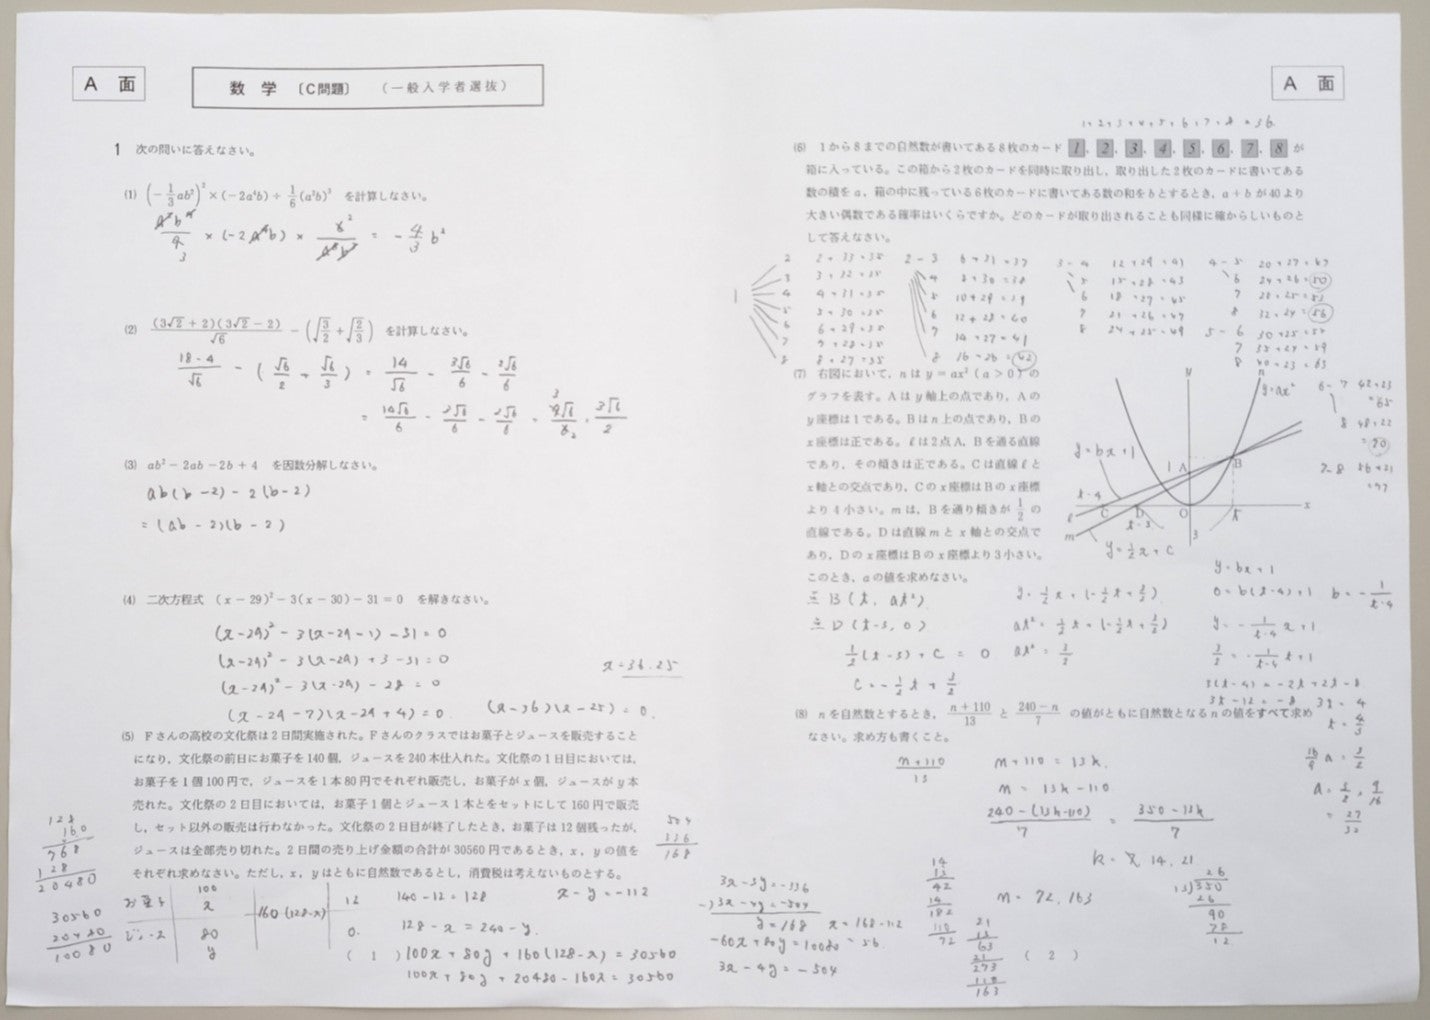 A 面
数 学 〔C問題〕 （一般入学者選抜）
1 次の問いに答えなさい。
(1) (-1/3 ab²)² × (-2a⁴b) ÷ 1/6 (a²b)³ を計算しなさい。
= -4/3 b²
(2) (3√2 + 2)(3√2 - 2)/√6 - (√(3/2) + √(2/3)) を計算しなさい。
18-4/√6 - (√6/2 + √6/3) = 14/√6 - 3√6/6 - 2√6/6
(3) ab² - 2ab - 2b + 4 を因数分解しなさい。
ab(b-2) - 2(b-2)
= (ab-2)(b-2)
(4) 二次方程式 (x-29)² - 3(x-30) - 31 = 0 を解きなさい。
(x-29)² - 3(x-29-1) - 31 = 0
(x-29)² - 3(x-29) + 3 - 31 = 0
(x-29)² - 3(x-29) - 28 = 0
(x-29-7)(x-29+4) = 0
(x-36)(x-25) = 0.
x = 36.25
(5) Fさんの高校の文化祭は2日間実施された。Fさんのクラスではお菓子とジュースを販売すること
になり，文化祭の前日にお菓子を140個，ジュースを240本仕入れた。文化祭の1日目においては，
お菓子を1個100円で，ジュースを1本80円でそれぞれ販売し，お菓子がx個，ジュースがy本
売れた。文化祭の2日目においては，お菓子1個とジュース1本とをセットにして160円で販売
し，セット以外の販売は行わなかった。文化祭の2日目が終了したとき，お菓子は12個残ったが，
ジュースは全部売り切れた。2日間の売り上げ金額の合計が30560円であるとき，x，yの値を
それぞれ求めなさい。ただし，x，yはともに自然数であるとし，消費税は考えないものとする。
128
160
768
128
20480
30560
20480
10080
504
336
168
お菓子 100 x
ジュース 80 y
160(128-x)
12
0.
140-12=128
x-y=-112
128-x=240-y.
100x+80y+160(128-x)=30560
100x+80y+20480-160x=30560
3x-3y=-336
-)3x-4y=-504
y=168 x=168-112
-60x+80y=10080 =56.
3x-4y=-504
( 1 )
A 面
1+2+3+4+5+6+7+8=36.
(6) 1から8までの自然数が書いてある8枚のカード 1，2，3，4，5，6，7，8 が
箱に入っている。この箱から2枚のカードを同時に取り出し，取り出した2枚のカードに書いてある
数の積をa，箱の中に残っている6枚のカードに書いてある数の和をbとするとき，a+bが40より
大きい偶数である確率はいくらですか。どのカードが取り出されることも同様に確からしいものと
して答えなさい。
1
2 2+33=35
3 3+32=35
4 4+31=35
5 5+30=35
6 6+29=35
7 7+28=35
8 8+27=35
2-3 6+31=37
4 8+30=38
5 10+29=39
6 12+28=40
7 14+27=41
8 16+26=42
3-4 12+29=41
5 15+28=43
6 18+27=45
7 21+26=47
8 24+25=49
4-5 20+27=47
6 24+26=50
7 28+25=53
8 32+24=56
5-6 30+25=55
7 35+24=59
8 40+23=63
6-7 42+23
=65
8 48+22
=70
7-8 56+21
=77
(7) 右図において，nはy=ax²（a>0）の
グラフを表す。Aはy軸上の点であり，Aの
y座標は1である。Bはn上の点であり，Bの
x座標は正である。ℓは2点A，Bを通る直線
であり，その傾きは正である。Cは直線ℓと
x軸との交点であり，Cのx座標はBのx座標
より4小さい。mは，Bを通り傾きが1/2の
直線である。Dは直線mとx軸との交点で
あり，Dのx座標はBのx座標より3小さい。
このとき，aの値を求めなさい。
y n
y=ax²
y=bx+1
1 A B
t-4
ℓ C D O t x
t-3
m
3
y=½x+C
B(t, at²)
D(t-3, 0)
½(t-3)+C = 0
C=-½t+3/2
y=½x+(-½t+3/2)
at²=½t+(-½t+3/2)
at²=3/2
y=bx+1
0=b(t-4)+1 b=-1/(t-4)
y=-1/(t-4) x+1
3/2=-1/(t-4) t+1
3(t-4)=-2t+2t-8
3t-12=-8 3t=4
t=4/3
16/9 a=3/2
a=3/2×9/16
=27/32
(8) nを自然数とするとき，(n+110)/13 と (240-n)/7 の値がともに自然数となるnの値をすべて求め
なさい。求め方も書くこと。
n+110/13
n+110=13k.
n=13k-110
240-(13k-110)/7 = 350-13k/7
k=7, 14, 21
n=72, 163
14
13
42
14
182
110
72
21
13
63
21
273
110
163
26
13)350
26
90
78
12.
( 2 )